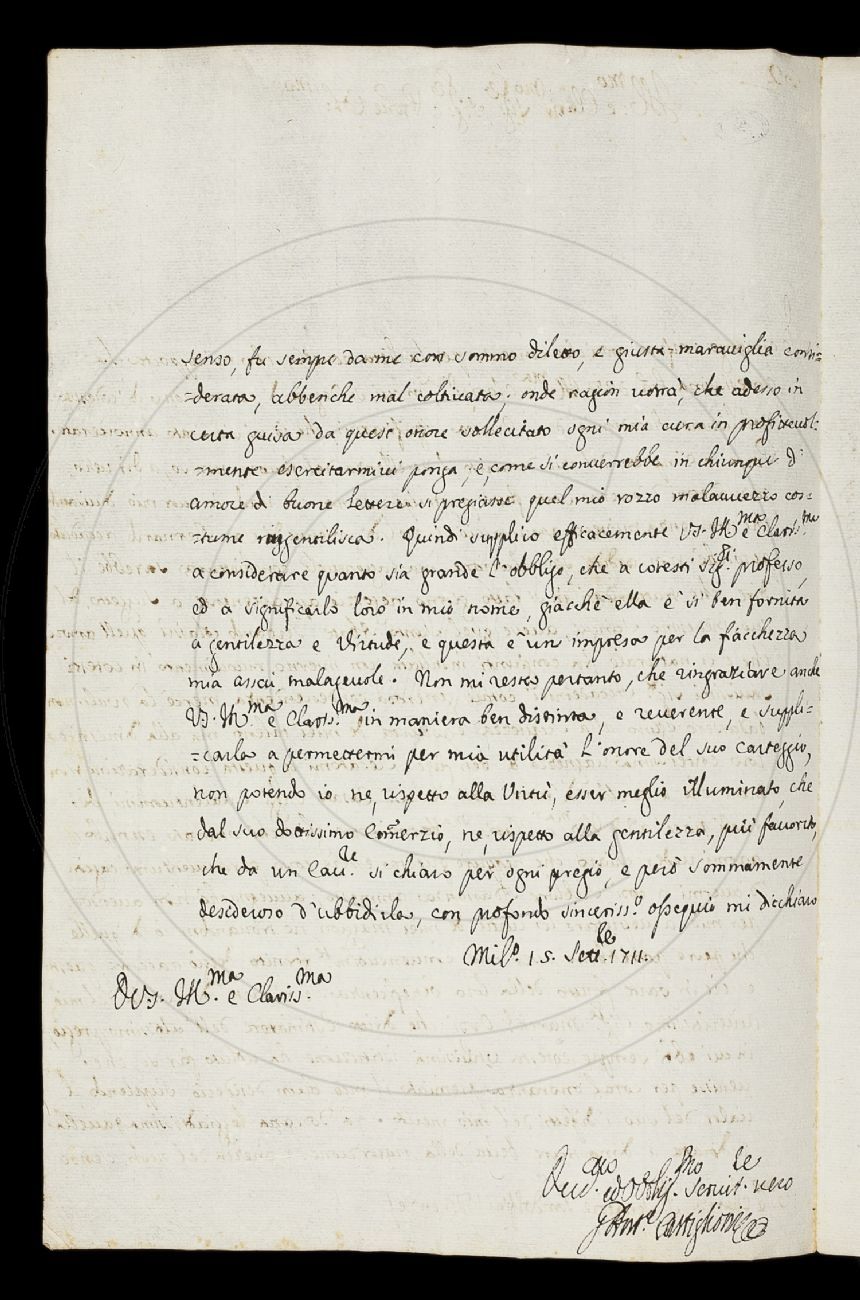 senso, fu sempre da me con sommo diletto, e giusta maraviglia consi=
=derata, abbenche mal coltivata; onde ragion vorrà, che adesso in
certa guisa da quest' onore sollecitato ogni mia cura in profittevol=
=mente esercitarmivi ponga, e, come si converrebbe in chiunque d'
amore di buone lettere si pregiasse quel mio rozzo malavvezzo cos=
=tume ringentilisca. Quindi supplico efficacemente VS. Ill.ma e Clariss.ma
a considerare quanto sia grande l'obbligo, che a cotesti Sig.ri professo,
ed a significarlo loro in mio nome, giacchè ella è si ben fornita
a gentilezza e Virtude, e questa è un impresa per la fiacchezza
mia assai malagevole. Non mi resta pertanto, che ringraziare anche
VS. Ill.ma e Clariss.ma in maniera ben distinta, e reverente, e suppli=
=carla a permettermi per mia utilità l'onore del suo Carteggio,
non potendo io ne, rispetto alla Virtù, esser meglio illuminato, che
dal suo dottissimo Comerzio, ne, rispetto alla gentilezza, più favorito,
che da un Cav.re si chiaro per ogni pregio, e però sommamente
desideroso d'ubbidirla, con profondo sinceriss.o ossequio mi dichiaro
Mil.o 15. Sett.le 1711.
D VS. Ill.ma e Clariss.ma
ed Obblig.mo Servit.le vero
Castiglione